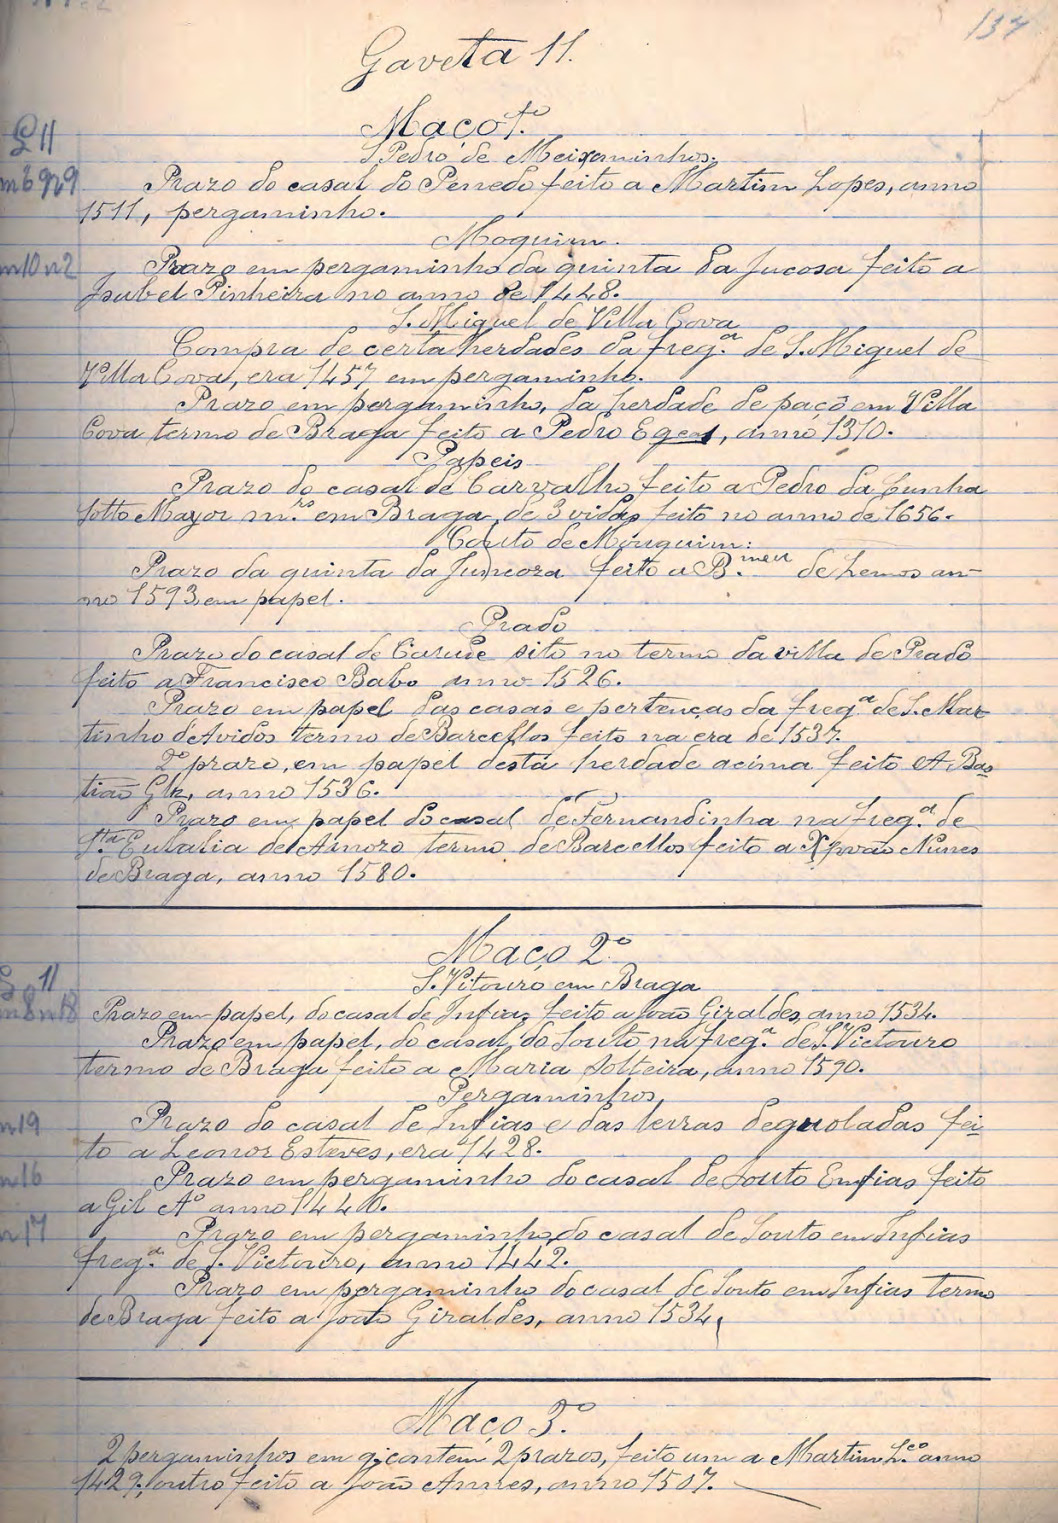 137
Gaveta 11.
Maço 1º
G 11
S. Pedro de Meixominhos.
m6 nº9
Prazo do casal do Penedo feito a Martim Lopes, anno
1511, pergaminho.
Moquim.
m10 n2
Prazo em pergaminho da quinta da Jucosa feito a
Isabel Pinheira no anno de 1448.
S. Miguel de Villa Cova
Compra de certa herdades da freg.ª de S. Miguel de
Villa Cova, era 1457 em pergaminho.
Prazo em pergaminho, da herdade de paçô em Villa
Cova termo de Braga feito a Pedro Egeas, anno 1310.
Papeis
Prazo do casal de Carvalho feito a Pedro da Cunha
Sotto Mayor m.ºʳ em Braga, de 3 vidas feito no anno de 1656.
Couto de Mouquim:
Prazo da quinta da Juncoza feito a B.meu de Lemos an-
no 1593, em papel.
Prado
Prazo do casal de sito no termo da villa de Prado
feito a Francisco Babo anno 1526.
Prazo em papel das casas e pertenças da freg.ª de S. Mar
tinho d'Avidos termo de Barcellos feito na era de 1537.
2º prazo, em papel desta herdade acima feito A Bas
tião Glz, anno 1536.
Prazo em papel do casal de Fernandinha na freg.ª de
S.ta Eulalia de Arnozo termo de Barcellos feito a Xpvão Nunes
de Braga, anno 1580.
Maço 2º
G 11
S. Vitouro em Braga
m8 n18
Prazo em papel, do casal de Infias feito a João Giraldes, anno 1534.
Prazo em papel, do casal do Souto na freg.ª de S. Victouro
termo de Braga feito a Maria Solteira, anno 1590.
Pergaminhos
n19
Prazo do casal de Infias e das terras deguoladas fei-
to a Leonor Esteves, era 1428.
n16
Prazo em pergaminho do casal de Souto Emfias feito
a Gil Aº anno 1440.
n17
Prazo em pergaminho, do casal de Souto em Infias
freg.ª de S. Victouro, anno 1442.
Prazo em pergaminho do casal de Souto em Infias termo
de Braga feito a João Giraldes, anno 1534,
Maço 3º
2 pergaminhos em q. contem 2 prazos, feito um a Martim L.ço anno
1429, outro feito a João Annes, anno 1507.